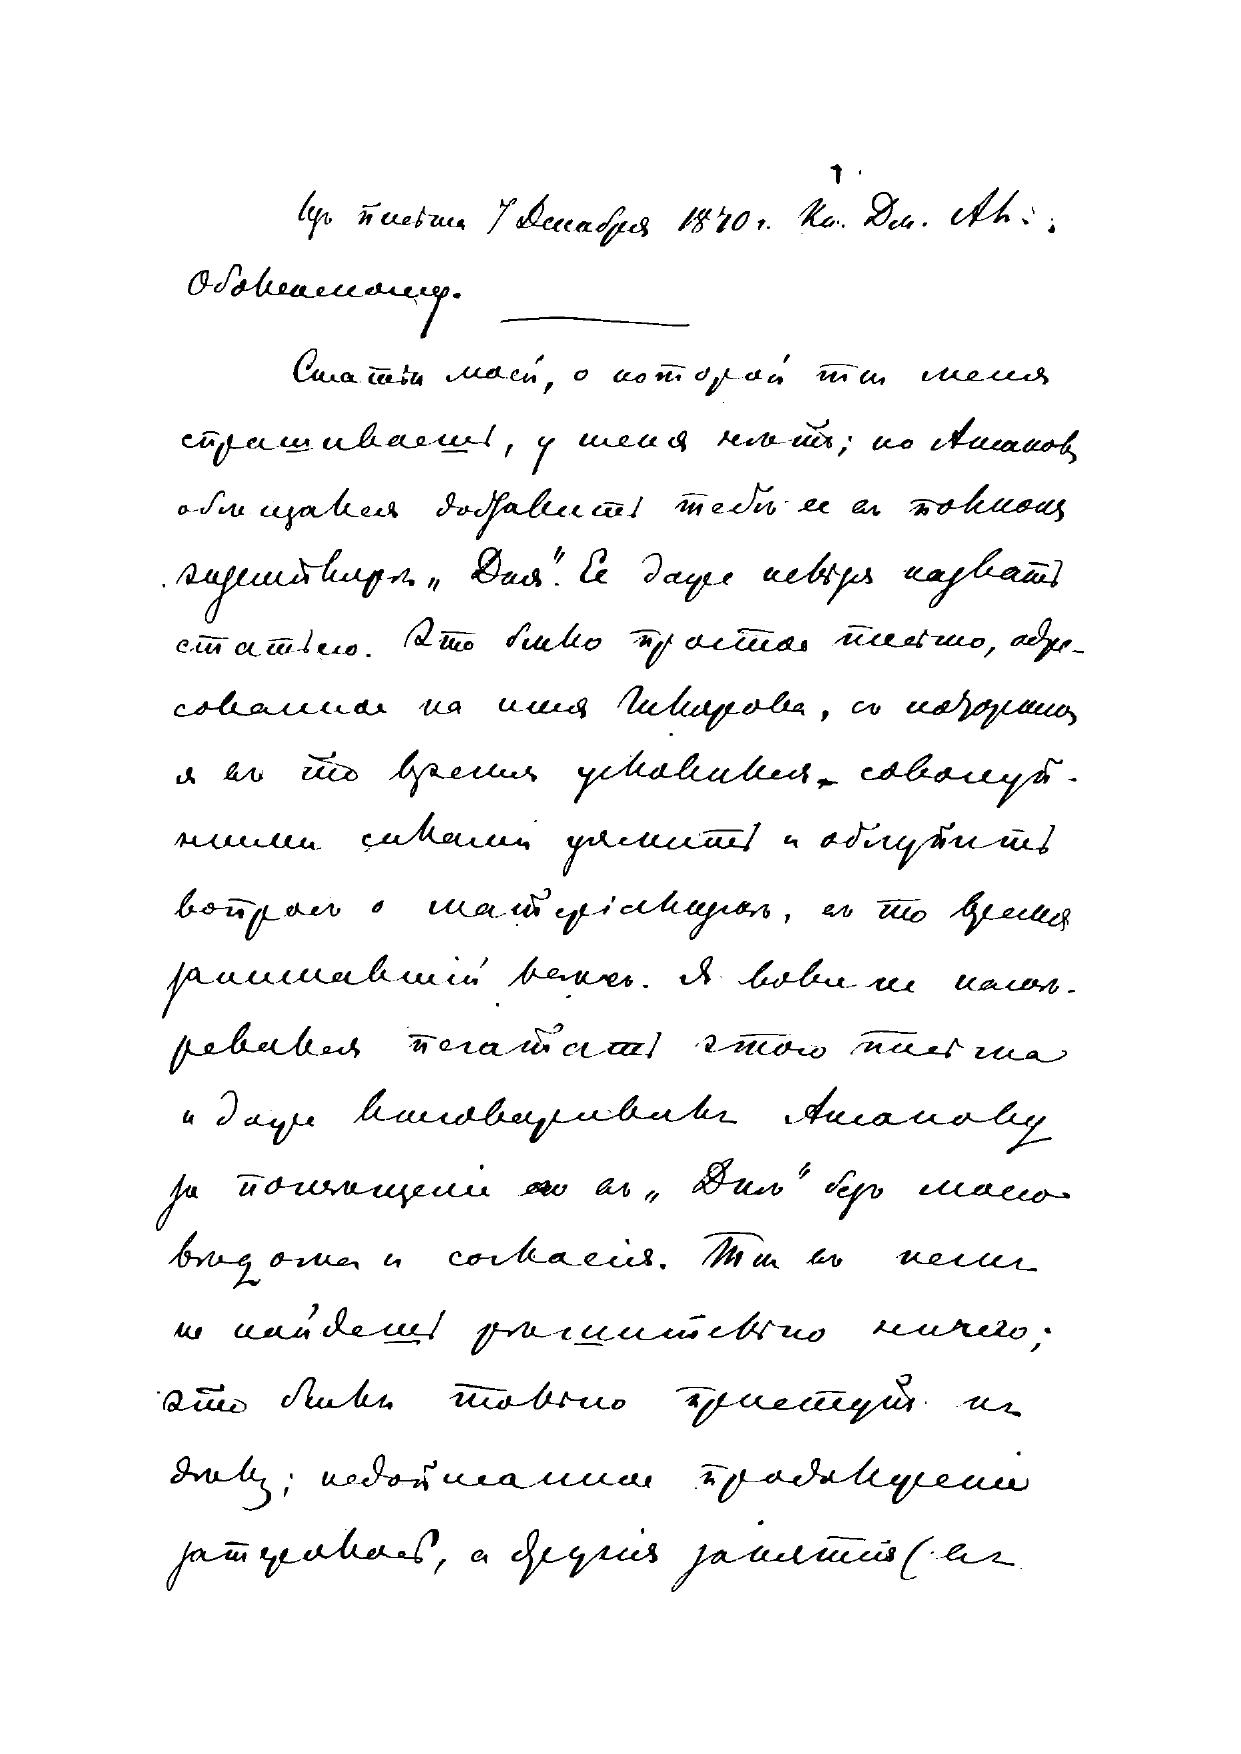 1
Изъ письма 7 Декабря 1870 г. Кн. Дм. Ал.
Оболенскому.
Статьи моей, о которой ты меня
спрашиваешь, у меня нѣтъ; но Аксаков
обѣщался доставить тебѣ ее въ полном
экземплярѣ „Дня“. Ее даже нельзя назвать
статьею. Это было простое письмо, адре-
сованное на имя Гилярова, съ которым
я въ то время условился совокуп-
ными силами уяснить и обсудить
вопросъ о матеріализмѣ, въ то время
занимавшій всѣхъ. Я вовсе не намѣ-
ревался печатать этого письма
и даже выговаривалъ Аксакову
за помѣщеніе его въ „Днѣ“ безъ моего
вѣдома и согласія. Ты въ немъ
не найдешь рѣшительно ничего;
это былъ только приступъ къ
дѣлу; недописанное продолженіе
затерялось, а другія занятія (въ